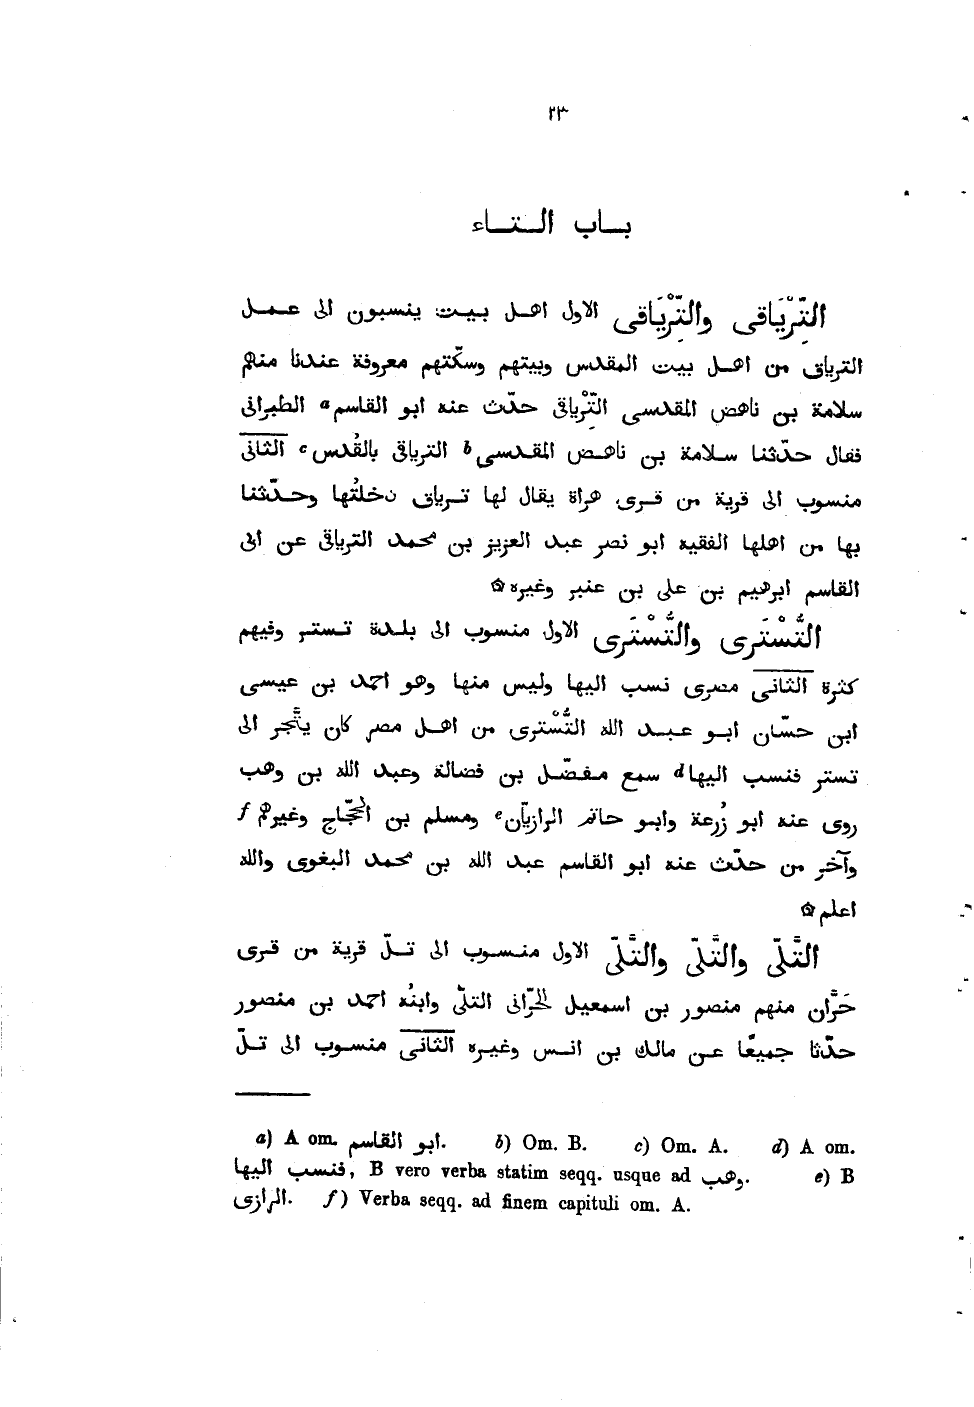 ٢٣
بــاب الــتــاء
التِّرْيَاقى والتِّرْيَاقى الاول اهــل بــيــت ينسبون الى عــمــل
الترياق من اهــل بيت المقدس وبيتهم وسكّتهم معروفة عندنا منهم
سلامة بن ناهض المقدسى التِّرْياق حدّث عنه ابو القاسم a الطبرانى
فقال حدّثنا ســلامة بن ناهــض المقــدسى b الترياقى بالقُدس c الثانى
منسوب الى قرية من قــرى هراة يقال لها تــرياق دخلتُها وحــدّثنا
بها من اهلها الفقيه ابو نصر عبد العزيز بن محمد الترياقى عن ابى
القاسم ابرهيم بن على بن عنبر وغيره ۞
التُّسْتَرى والتُّسْتَرى الاول منسوب الى بلــدة تــستــر وفيهم
كثرة الثانى مصرى نسب اليها وليس منها وهو احمد بن عيسى
ابن حسّان ابــو عــبــد الله التُّسْترى من اهــل مصر كان يتَّجر الى
تستر فنسب اليها d سمع مــفــضّــل بن فضالة وعبد الله بن وهب
روى عنه ابو زُرعة وابــو حاتم الرازيّان e ومسلم بن الحجّاج وغيرهم f
وآخر من حدّث عنه ابو القاسم عبد الله بن محمد البغوى والله
اعلم ۞
التَّلّى والتَّلّى والتَّلّى الاول منــسوب الى تــلّ قرية من قرى
حَرَّان منهم منصور بن اسمعيل الحرّانى التلّى وابنُه احمد بن منصور
حدّثا جميعًا عــن مالك بن انــس وغيره الثانى منسوب الى تــلّ
a) A om. ابو القاسم. b) Om. B. c) Om. A. d) A om.
فنسب اليها, B vero verba statim seqq. usque ad وهب. e) B
الرازى. f) Verba seqq. ad finem capituli om. A.